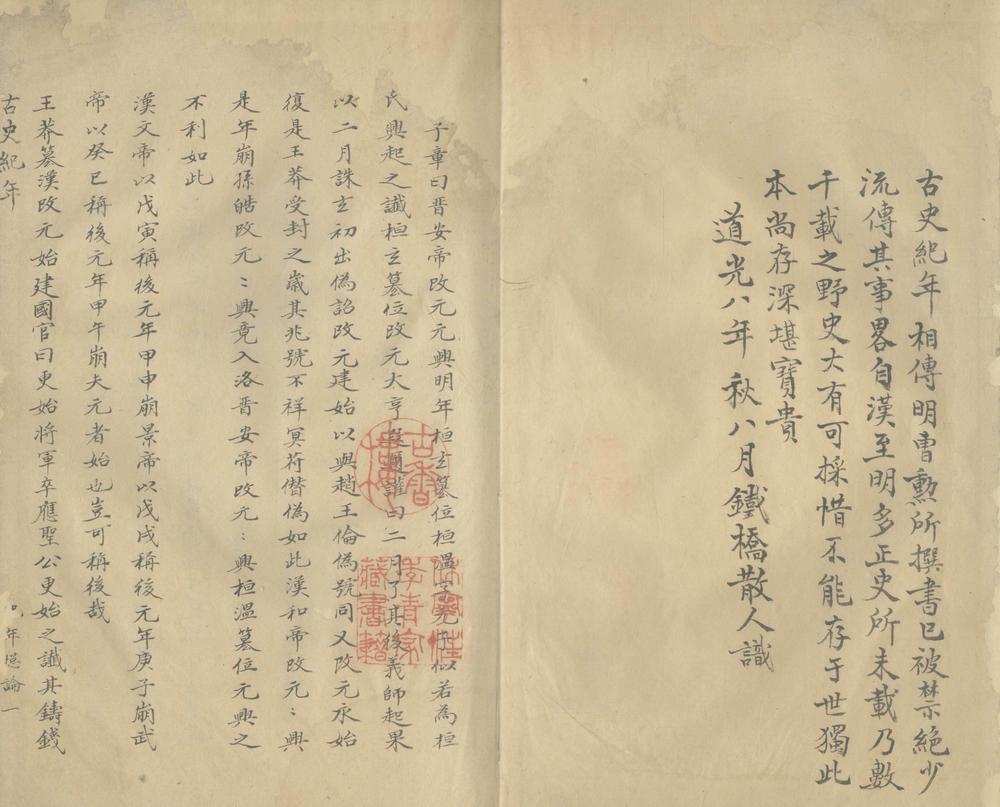 古史紀年相傳明曹勳所撰書已被禁絕少
流傳其事畧自漢至明多正史所未載乃數
千載之野史大有可採惜不能存于世獨此
本尚存深堪寶貴
道光八年秋八月鐵橋散人識
子章曰晋安帝改元元興明年桓玄簒位桓溫字元子似若為桓
氏興起之讖桓玄簒位改元大亨遐邇讙曰二月了其後義師起果
以二月誅玄初出偽詔改元建始以與趙王倫偽號同又改元永始
復是王莽受封之歲其兆號不祥冥符僭偽如此漢和帝改元：興
是年崩孫皓改元：興竟入洛晋安帝改元：興桓溫簒位元興之
不利如此
漢文帝以戊寅稱後元年甲申崩景帝以戊戌稱後元年庚子崩武
帝以癸巳稱後元年甲午崩夫元者始也豈可稱後哉
王莽簒漢改元始建國官曰更始將軍卒應聖公更始之讖其鑄錢
古史紀年
年總論一